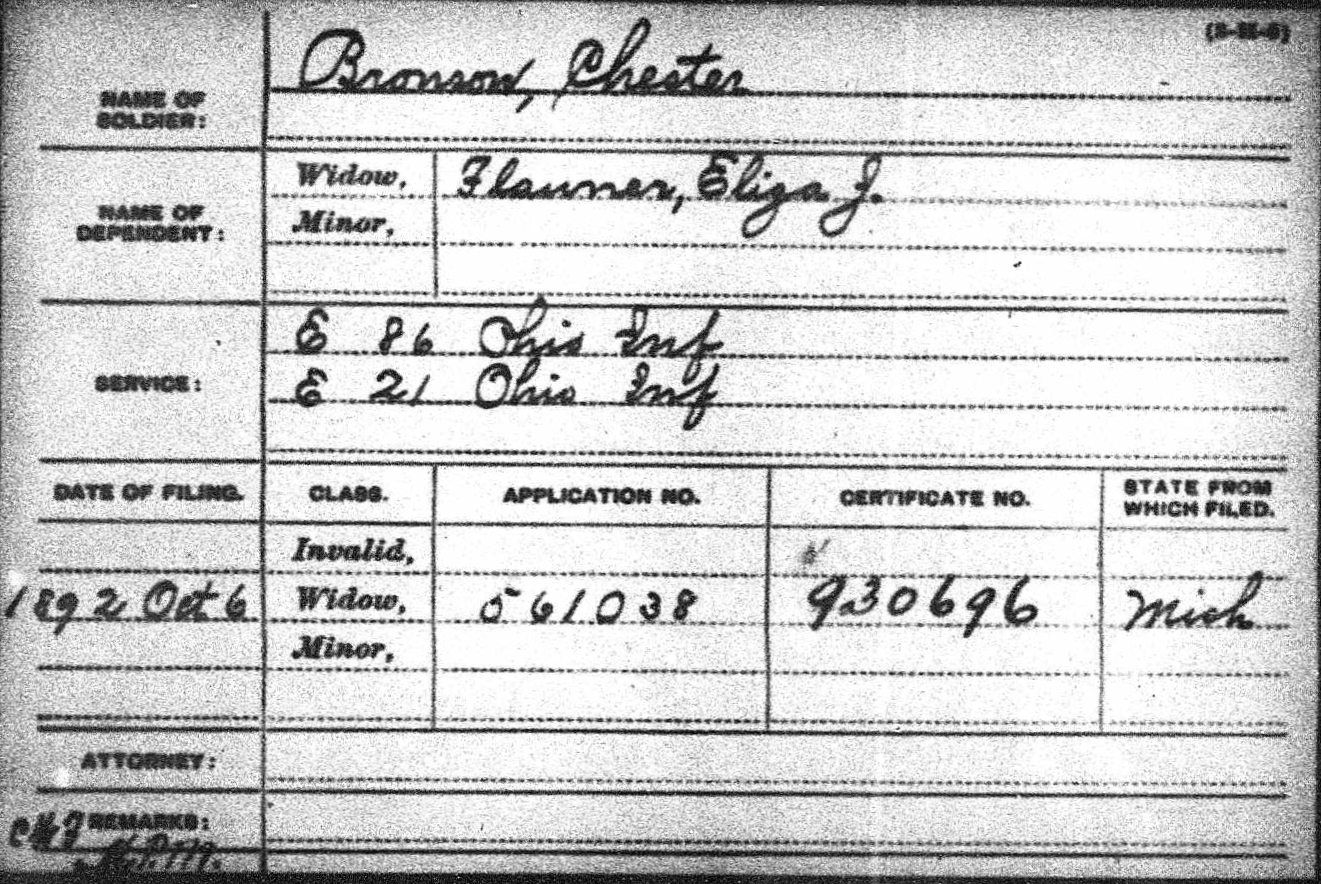 NAME OF SOLDIER: Bronson, Chester
NAME OF DEPENDENT:
Widow, Flauner, Eliza J.
Minor,
SERVICE:
E 86 Ohio Inf
E 21 Ohio Inf
DATE OF FILING. CLASS. APPLICATION NO. CERTIFICATE NO. STATE FROM WHICH FILED.
Invalid,
1892 Oct 6 Widow, 561038 930696 Mich
Minor,
ATTORNEY:
REMARKS: